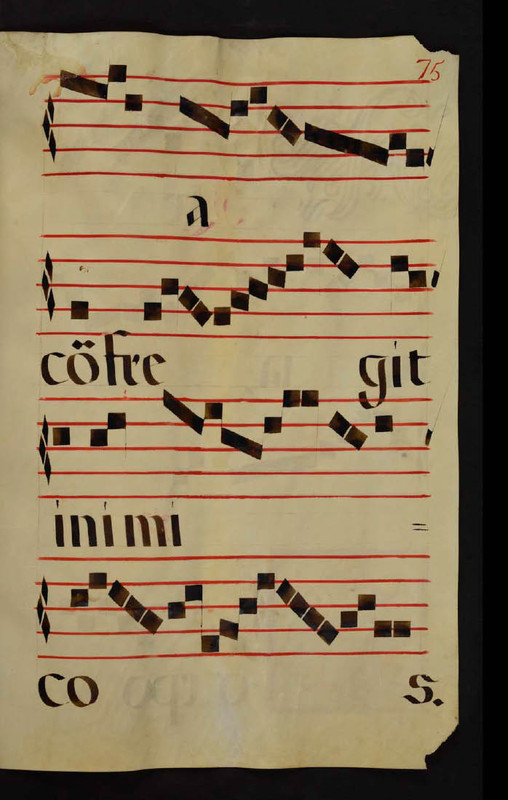 75
a
cöfre git
inimi =
co s.